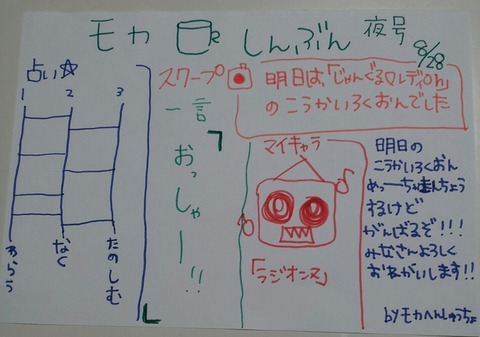 モカ しんぶん 夜号 8/28
占い☆
1 2 3
わらう なく たのしむ
スクープ
明日は、「じゃんぐるレディOh」
のこうかいろくおんでした
一言
「おっしゃー!!」
マイキャラ
「ラジオンヌ」
明日の
こうかいろくおん
めーっちゃきんちょう
するけど
がんばるぞ!!!
みなさんよろしく
おねがいします!!
byモカへんしゅうちょ